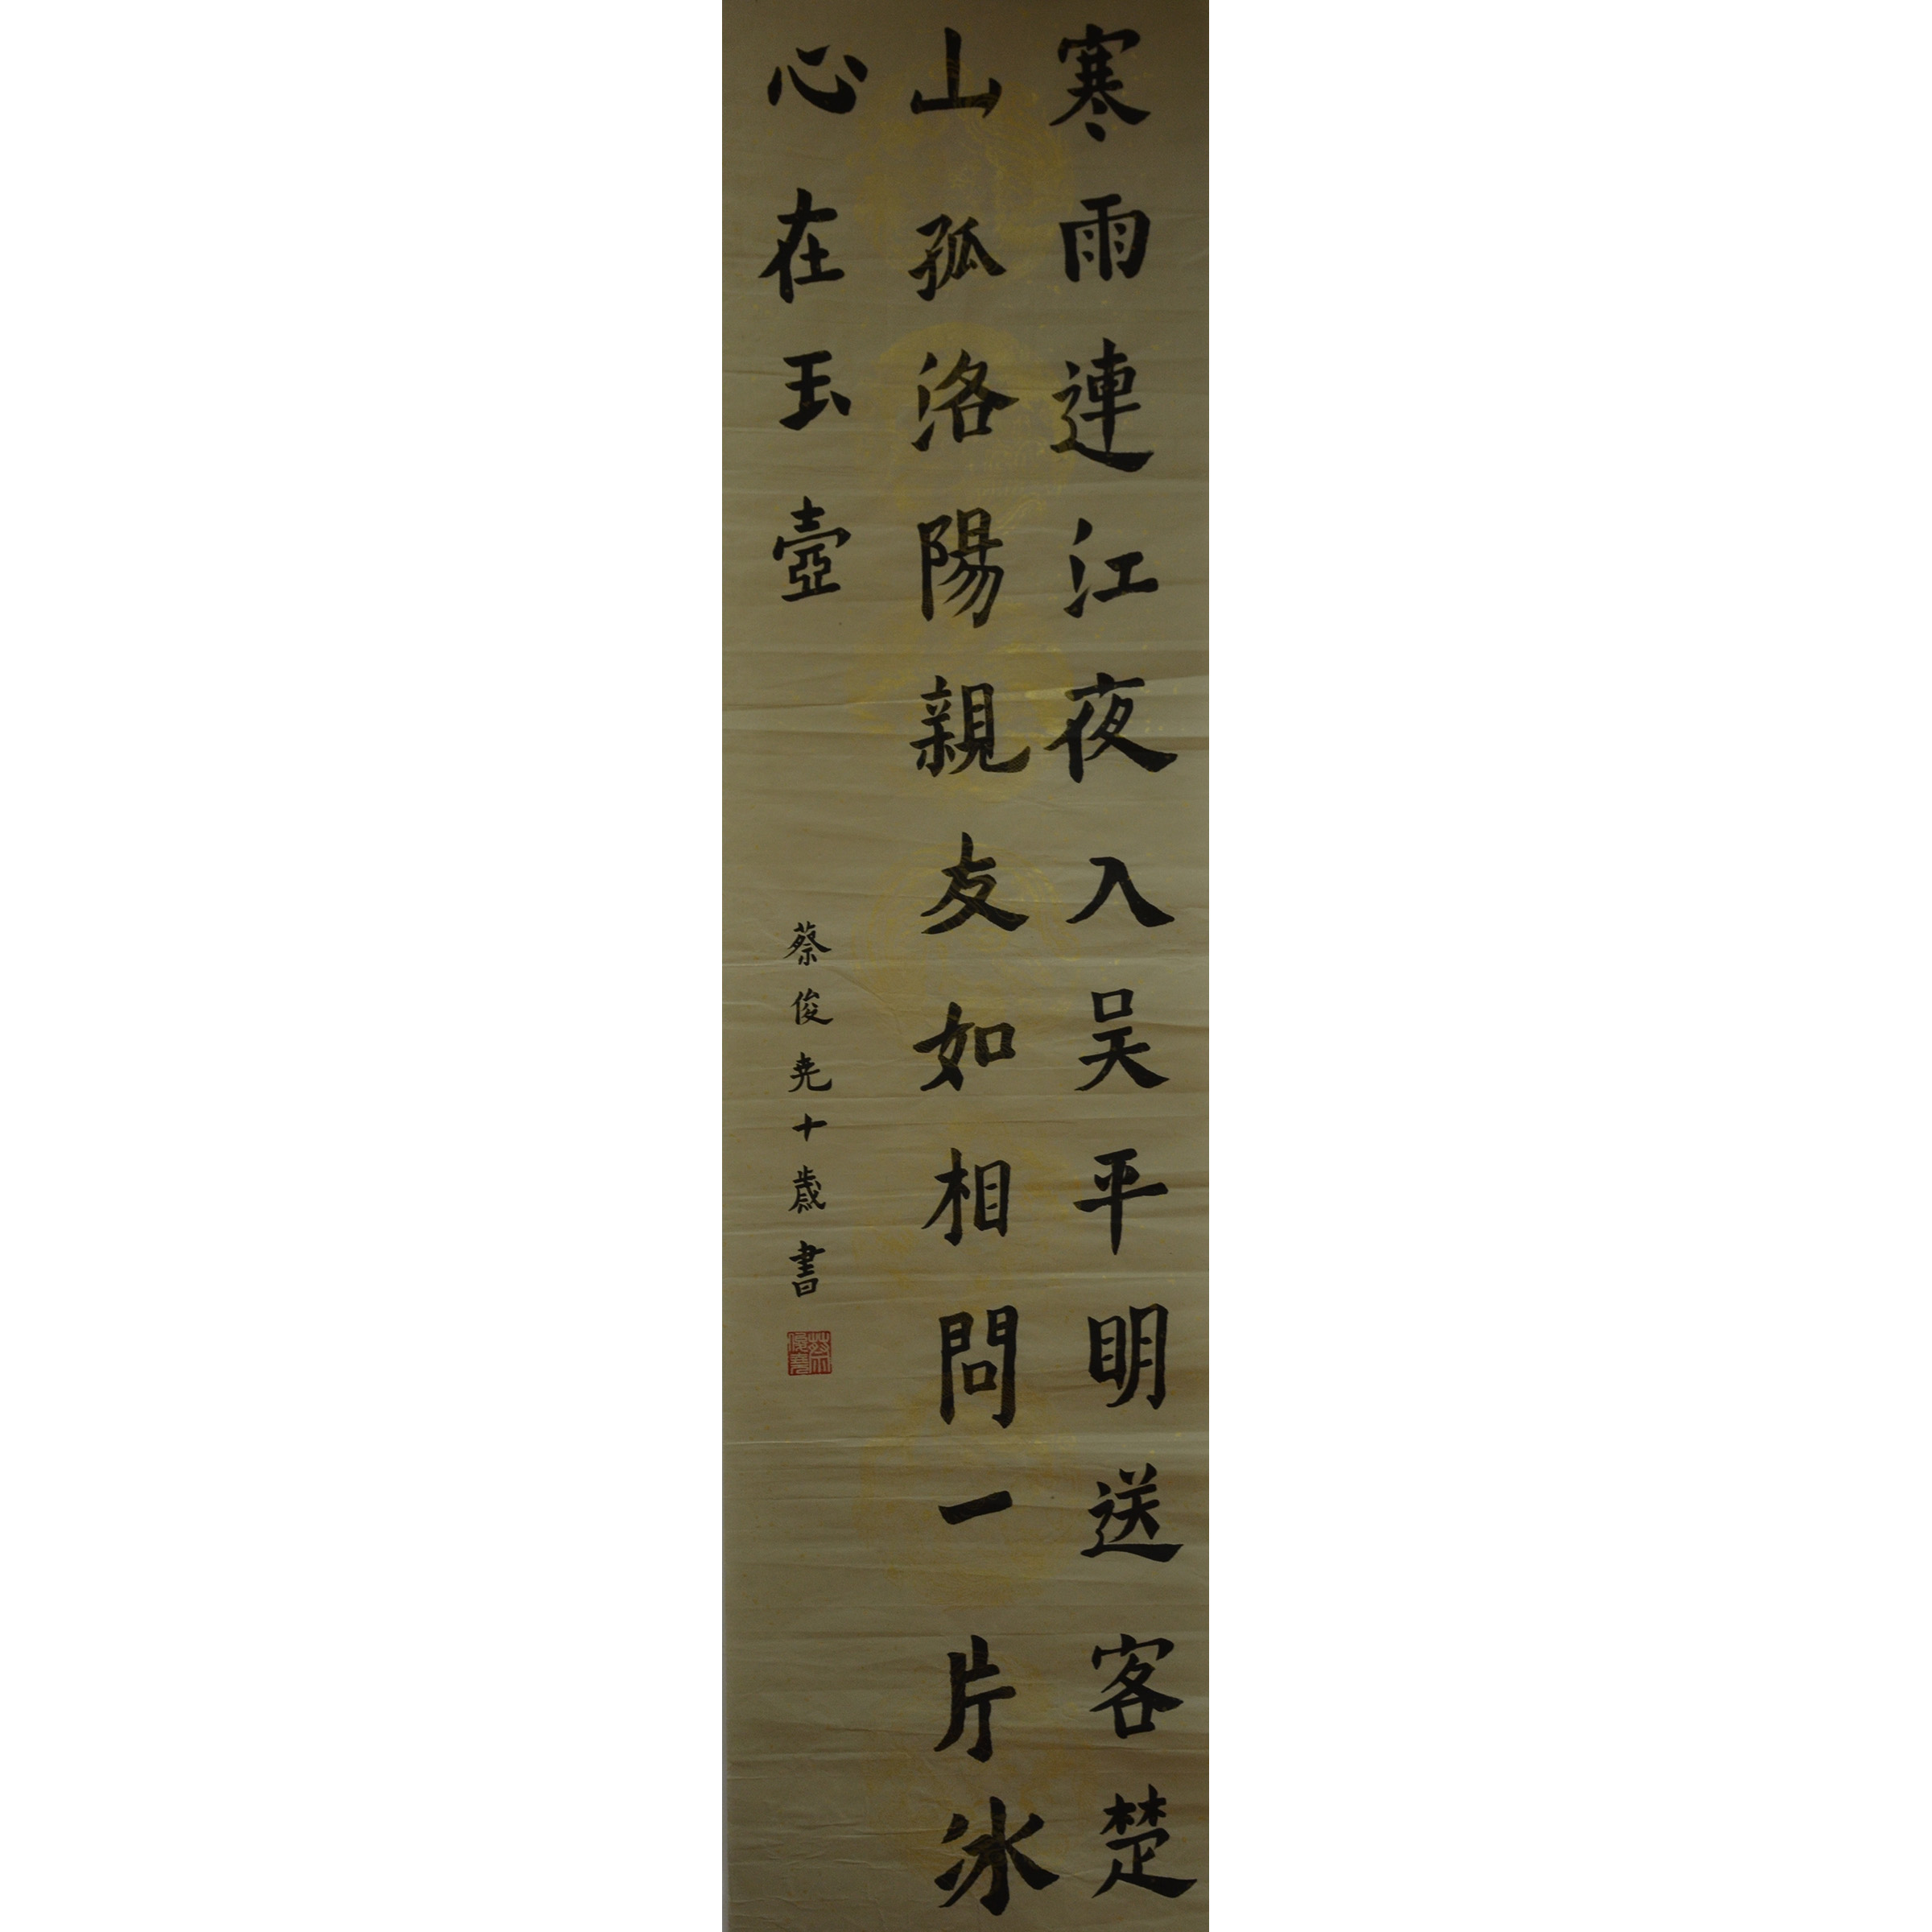 寒雨連江夜入吴平明送客楚
山孤洛陽親友如相問一片冰
心在玉壺
蔡俊尧十歳書